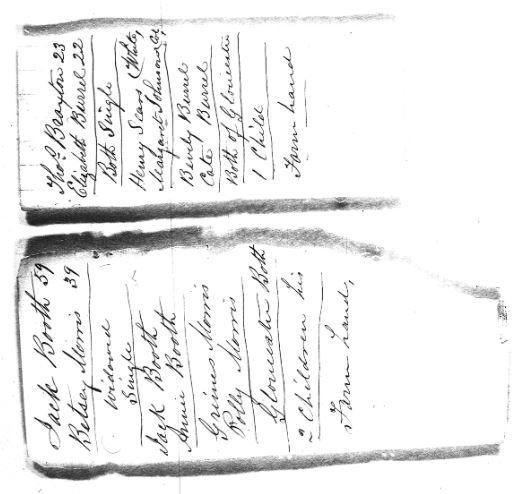 Thos. Braxton 23
Elizabeth Burrel 22
Both Single
Henry Sears (White)
Margaret Johnson Col.
Beverly Burrel
Cate Burrel
Both of Gloucester
1 Child
Farm hand
Jack Booth 59
Betsey Morris 39
Widowd
Single
Jack Booth
Annie Booth
Grimes Morris
Polly Morris
Gloucester Both
2 Children his
Farm hand,